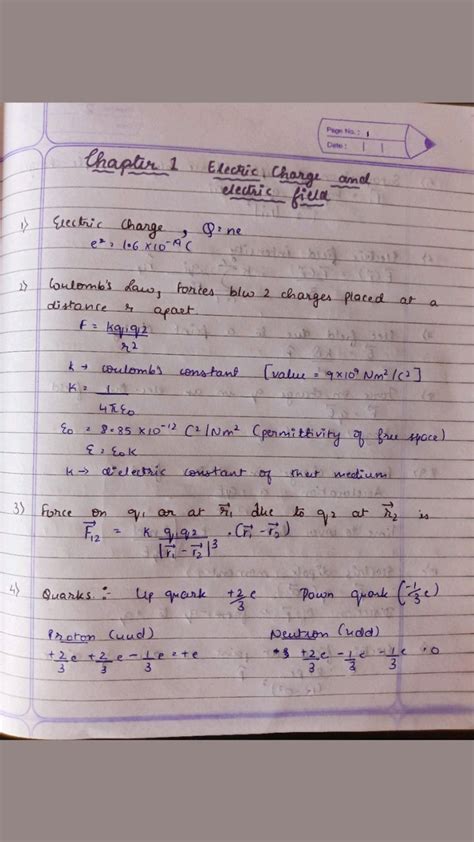 Page No.: 1
Date: | |
Chapter 1 Electric Charge and
electric field
1) Electric Charge, Q=ne
e⁻ = 1.6 × 10⁻¹⁹ C
2) Coulomb's Law, Forces b/w 2 charges placed at a
distance r apart
F = kq₁q₂/r²
k → coulomb's constant [value = 9×10⁹ Nm²/C²]
K = 1/4πε₀
ε₀ = 8.85 × 10⁻¹² C²/Nm² (permittivity of free space)
ε = ε₀k
k → dielectric constant of that medium
3) Force on q₁ or at r⃗₁ due to q₂ at r⃗₂ is
F⃗₁₂ = k q₁q₂/|r⃗₁ - r⃗₂|³ . (r⃗₁ - r⃗₂)
4) Quarks :- Up quark +2/3 e Down quark (-1/3 e)
Proton (uud) Neutron (udd)
+2/3 e +2/3 e -1/3 e = +e +2/3 e -1/3 e -1/3 e = 0